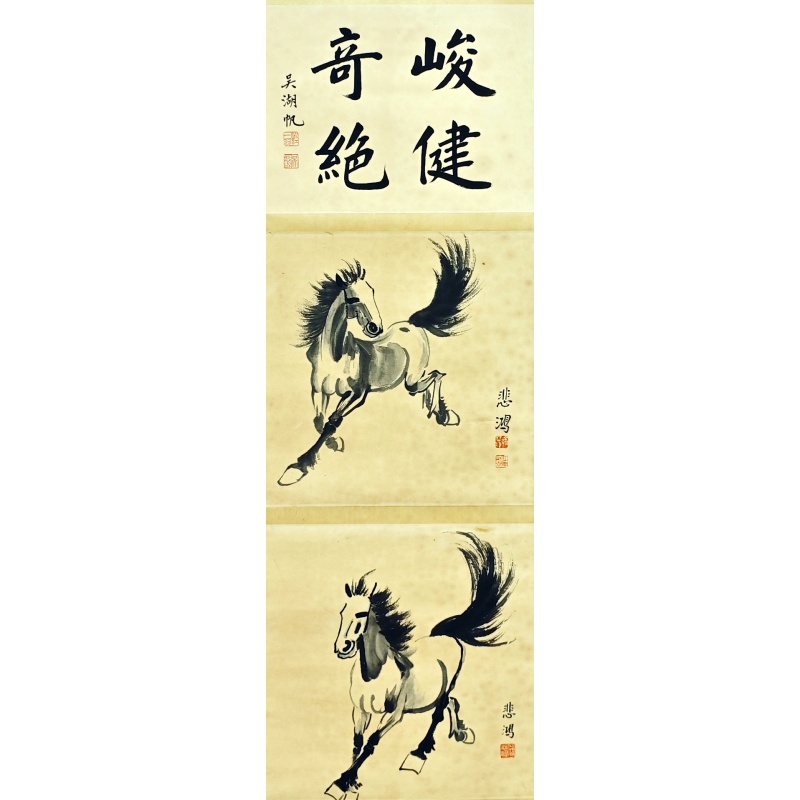 峻健
奇絶
吴湖帆
悲鴻
悲鴻